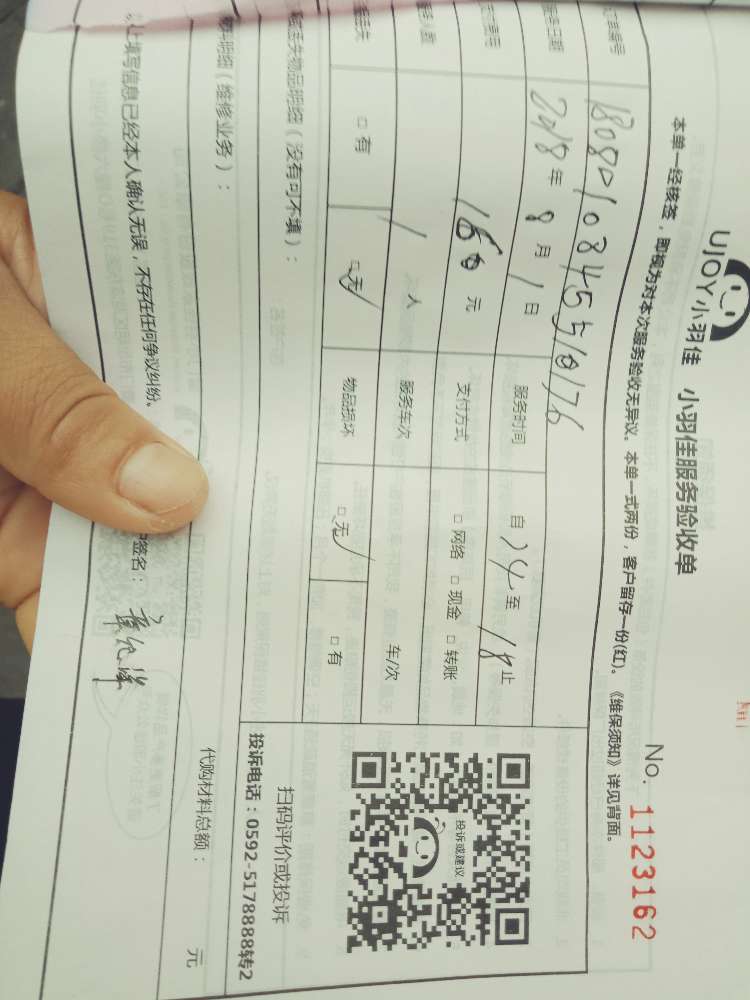 UJOY小羽佳 小羽佳服务验收单
No. 1123162
本单一经核签，即视为对本次服务验收无异议。本单一式两份，客户留存一份(红)。《维保须知》详见背面。
编号
服务日期 2018年 8月 1日 服务时间 自 14 至 18 止
160 元 支付方式 □ 网络 □ 现金 □ 转账
人数 1 人 服务车次 车/次
丢失 □ 有 □ 无 物品损坏 □ 无 □ 有
丢失物品明细（没有可不填）：
投诉或建议
扫码评价或投诉
投诉电话：0592-5178888转2
明细（维修业务）：
代购材料总额： 元
以上填写信息已经本人确认无误，不存在任何争议纠纷。
签名：